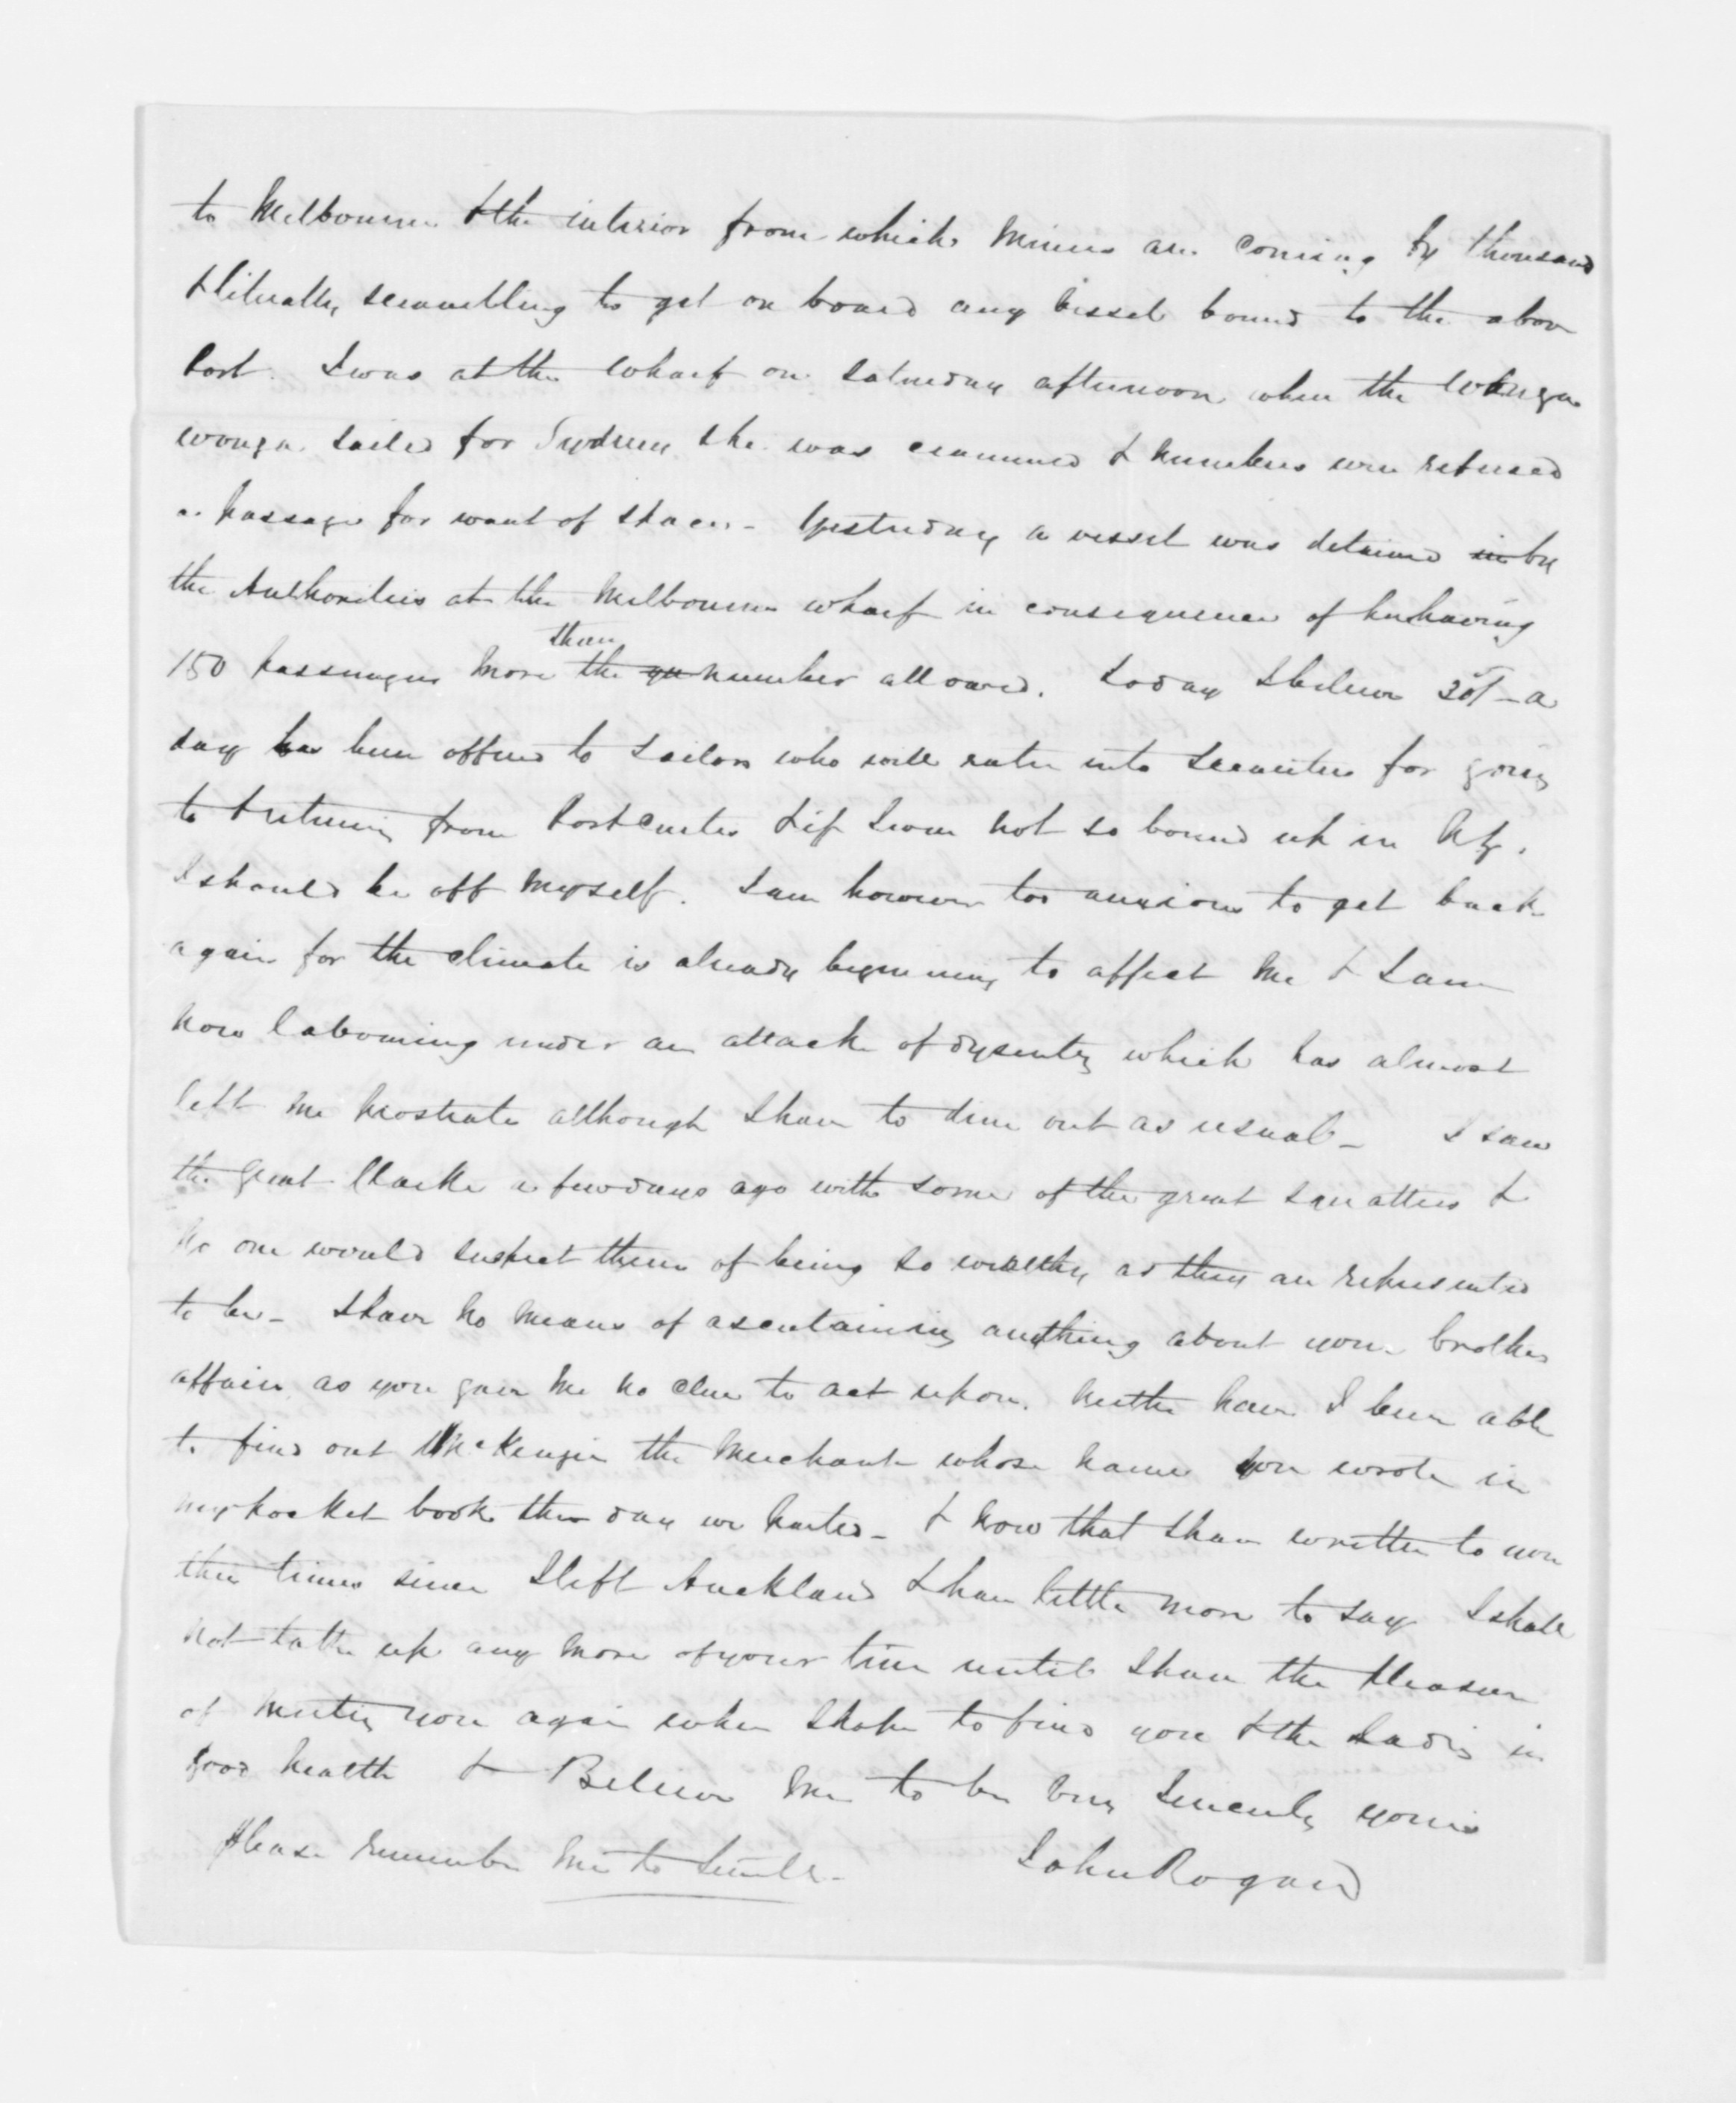 to Melbourne & the interior from which Miners are coming by thousands
& literally scrambling to get on board any vessel bound to the above
Port. I was at the Wharf on Saturday afternoon when the Wonga
wonga sailed for Sydney she was crammed & numbers were refused
a passage for want of space - Yesterday a vessel was detained in by
the Authorities at the Melbourne wharf in consequence of her having
150 passengers more than the number allowed. Today I believe 30/- a
day has been offered to Sailors who will enter into Securities for going
to & returning from Port Curtis & if I was not so bound up in NZ.
I should be off myself. I am however too anxious to get back
again for the climate is already beginning to affect me & I am
now labouring under an attack of dysentery which has almost
left me prostrate although I have to dine out as usual - I saw
the Great Clarke a few days ago with some of the great squatters &
no one would suspect them of being so wealthy as they are represented
to be - I have no means of ascertaining anything about your brothers
affairs as you gave me no clue to act upon. Neither have I been able
to find out McKenzie the Merchant whose name you wrote in
my pocket book the day we parted - & now that I have written to you
three times since I left Auckland & have little more to say I shall
not take up any more of your time until I have the pleasure
of meeting you again when I hope to find you & the Ladies in
good health & Believe me to be very Sincerely yours
Please remember me to
John Rogan